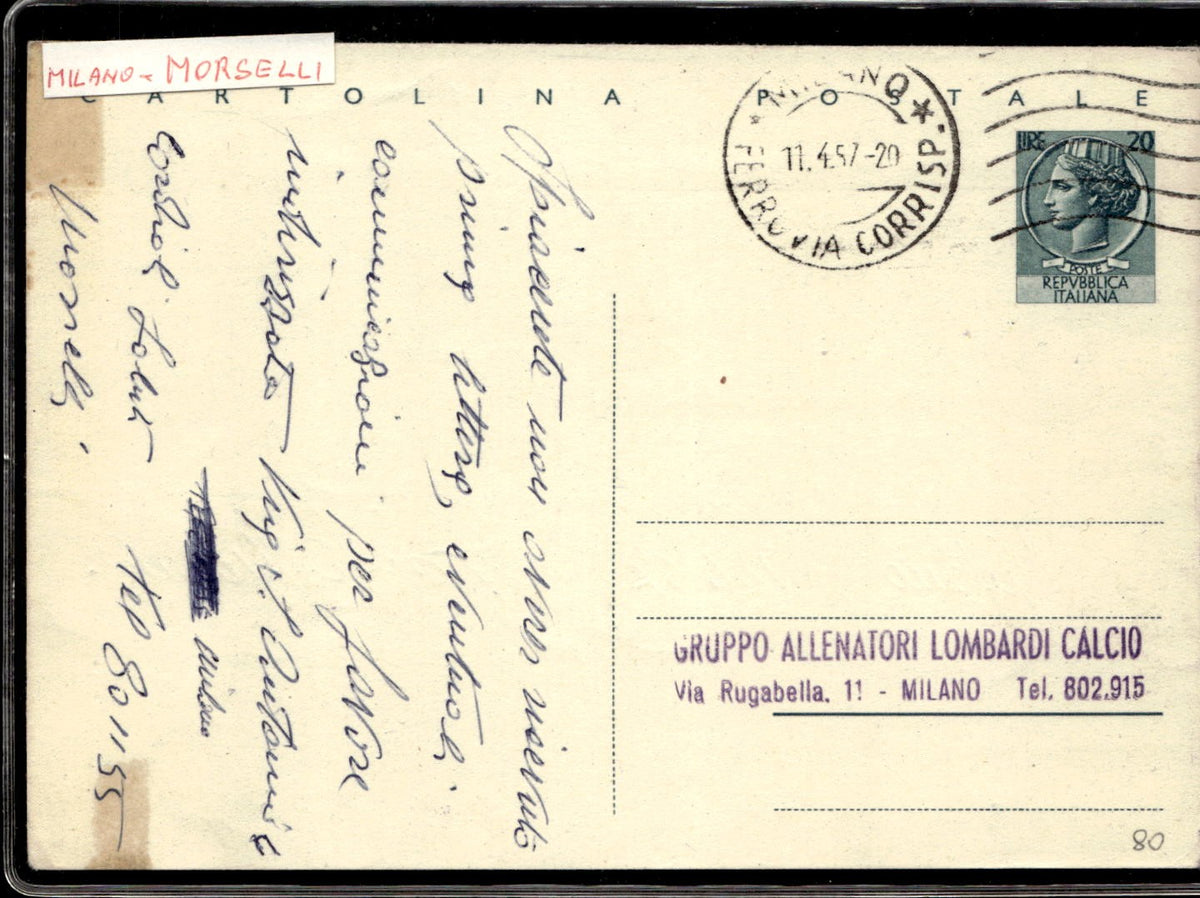 MILANO - MORSELLI
CARTOLINA POSTALE
MILANO
FERROVIA CORRISP.
11.4.57-20
LIRE 20
POSTE
REPVBBLICA
ITALIANA
Spiacente non aver ricevuto
prima lettera, eventuali
comunicazioni per favore
indirizzate Via S. Antonio 
Milano
Cordiali saluti Tel 801155
Morselli
GRUPPO ALLENATORI LOMBARDI CALCIO
Via Rugabella, 11 - MILANO Tel. 802.915
80